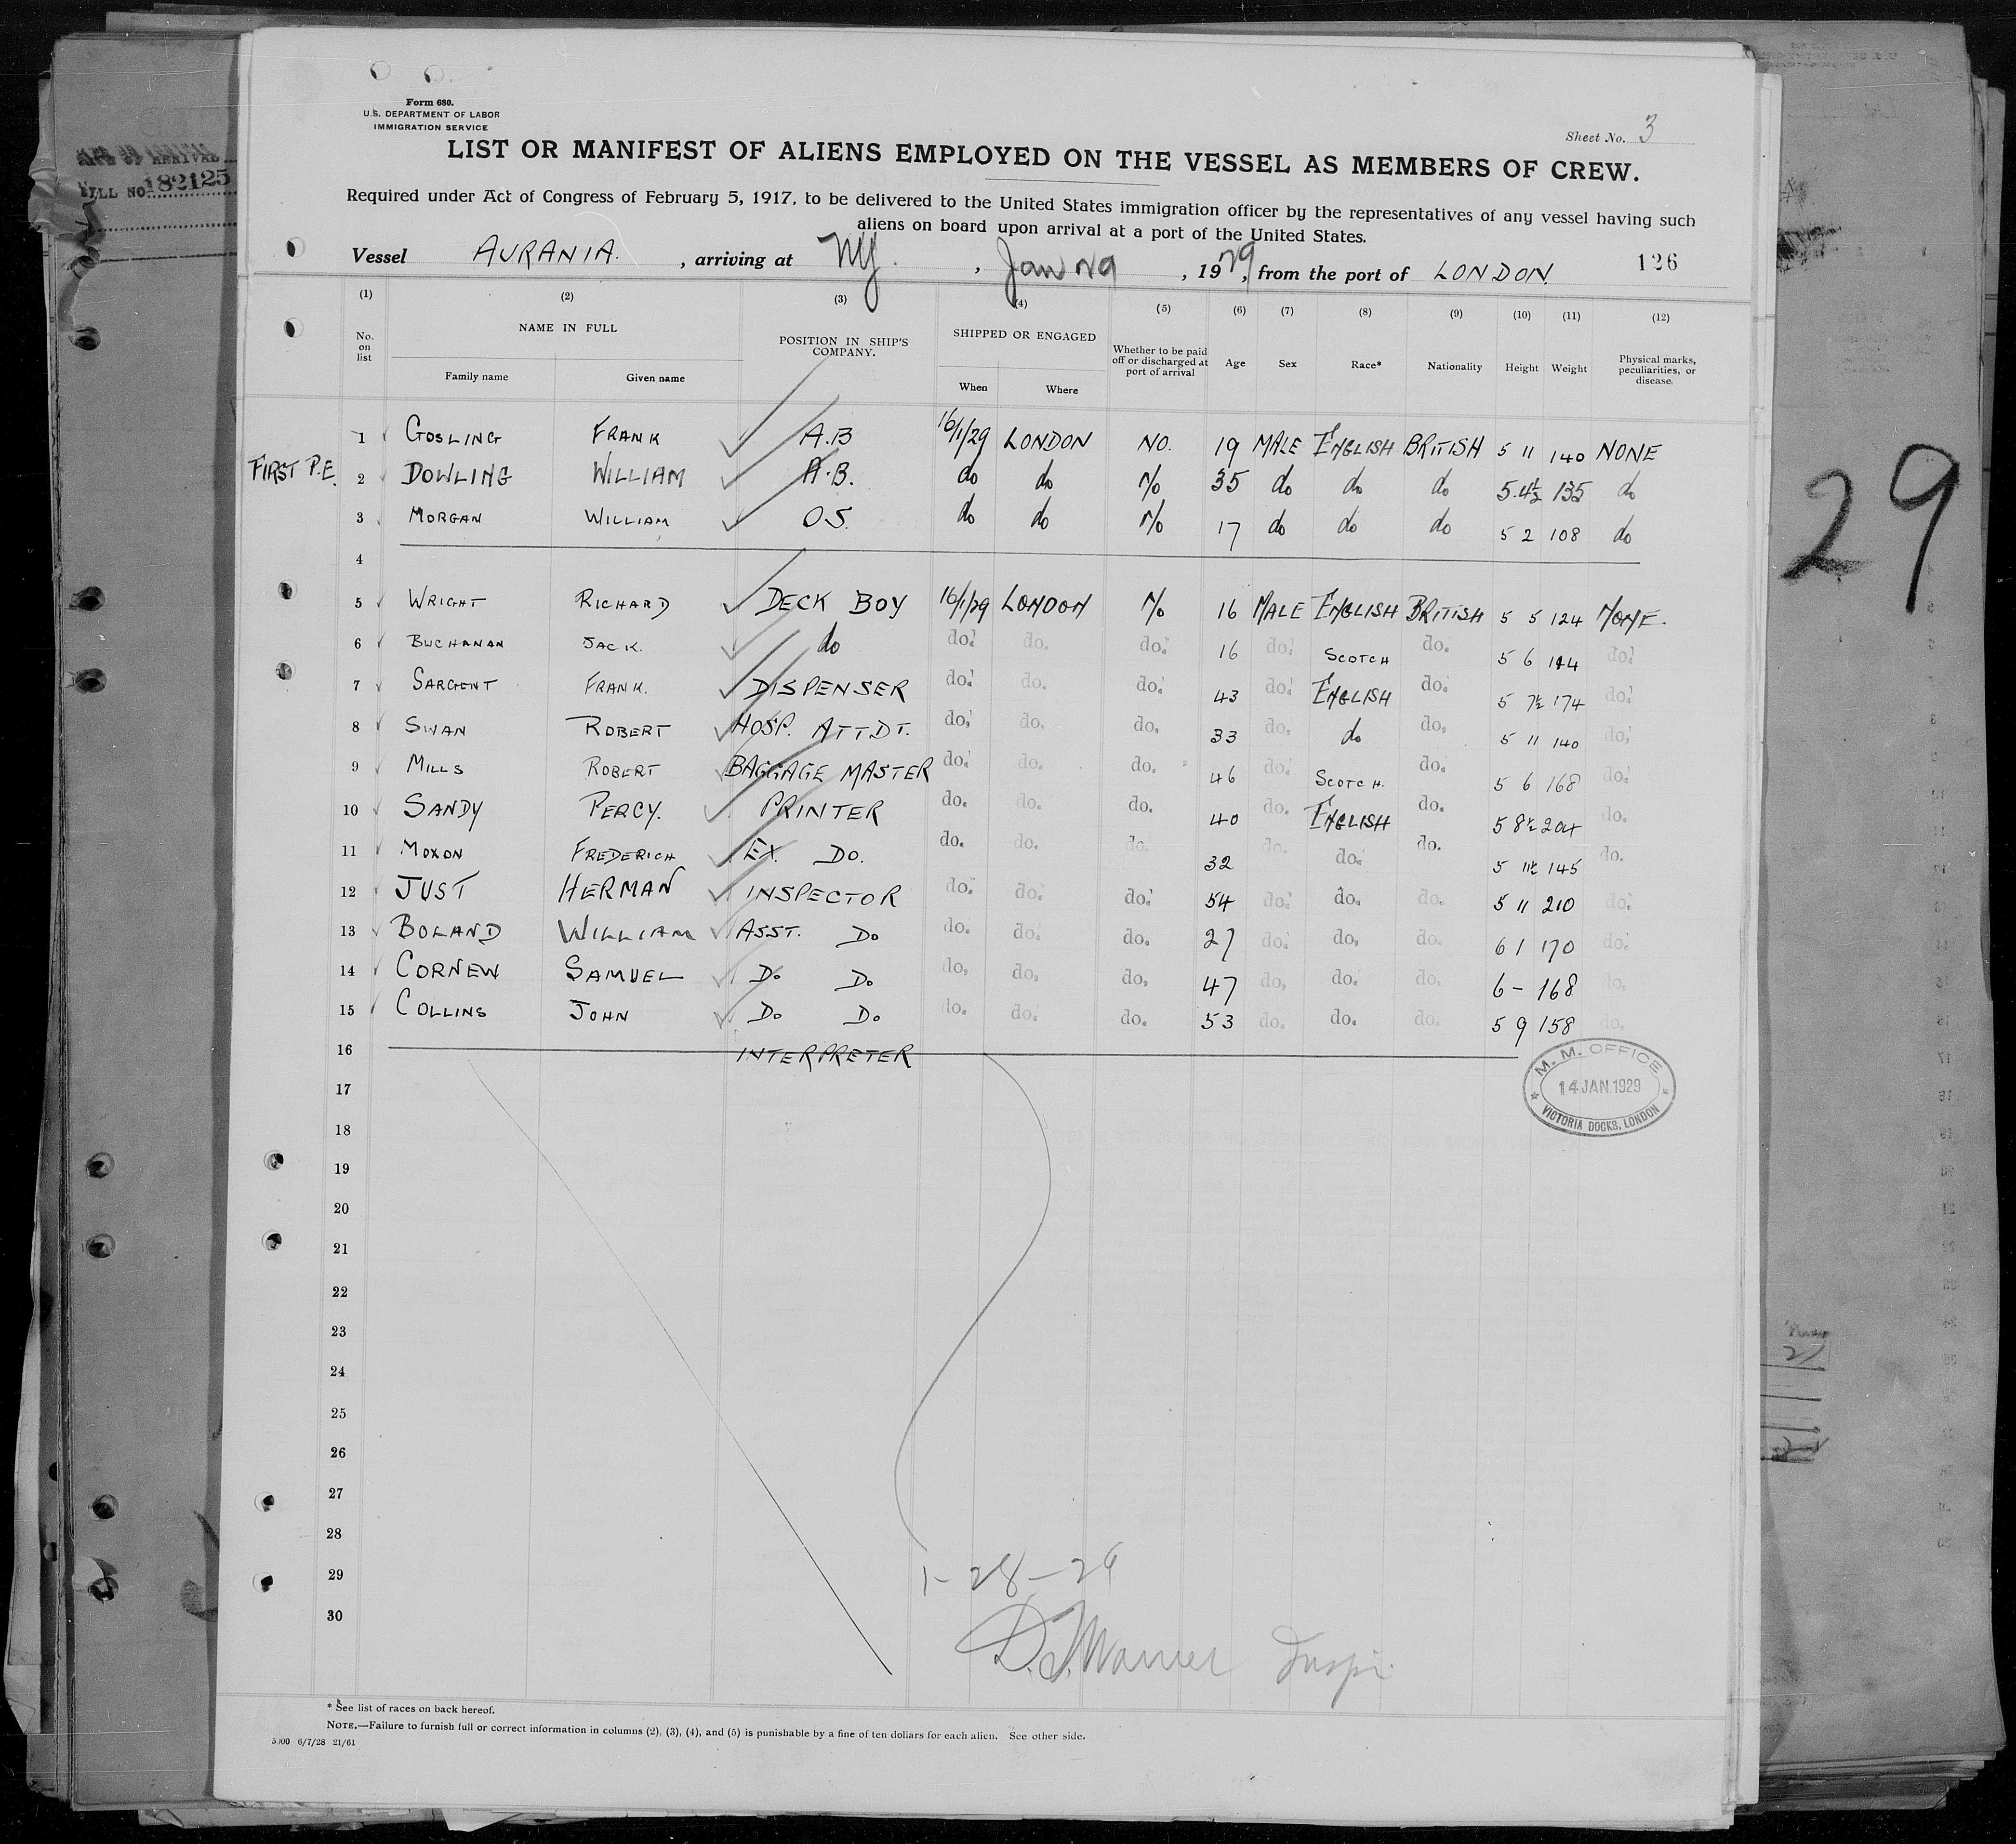 Form 680.
U.S. DEPARTMENT OF LABOR
IMMIGRATION SERVICE
Sheet No. 3
LIST OR MANIFEST OF ALIENS EMPLOYED ON THE VESSEL AS MEMBERS OF CREW.
Required under Act of Congress of February 5, 1917, to be delivered to the United States immigration officer by the representatives of any vessel having such
aliens on board upon arrival at a port of the United States.
Vessel AURANIA. , arriving at NY. , Jan 29 , 1929, from the port of LONDON. 126
(1) (2) (3) (4) (5) (6) (7) (8) (9) (10) (11) (12)
No. on list NAME IN FULL POSITION IN SHIP'S COMPANY. SHIPPED OR ENGAGED Whether to be paid off or discharged at port of arrival Age Sex Race* Nationality Height Weight Physical marks, peculiarities, or disease.
Family name Given name When Where
1 GOSLING FRANK A.B 16/1/29 LONDON NO. 19 MALE ENGLISH BRITISH 5 11 140 NONE
FIRST P.E. 2 DOWLING WILLIAM A.B. do do N/o 35 do do do 5.4½ 135 do
3 MORGAN WILLIAM O.S. do do N/o 17 do do do 5 2 108 do
4
5 WRIGHT RICHARD DECK BOY 16/1/29 LONDON N/o 16 MALE ENGLISH BRITISH 5 5 124 NONE.
6 BUCHANAN JACK. do do. do. do. 16 do. SCOTCH do. 5 6 144 do.
7 SARGENT FRANK. DISPENSER do. do. do. 43 do. ENGLISH do. 5 7½ 174 do.
8 SWAN ROBERT HOSP. ATTDT. do. do. do. 33 do. do do. 5 11 140 do.
9 MILLS ROBERT BAGGAGE MASTER do. do. do. 46 do. SCOTCH. do. 5 6 168 do.
10 SANDY PERCY. PRINTER do. do. do. 40 do. ENGLISH do. 5 8½ 204 do.
11 MOXON FREDERICH EX. DO. do. do. do. 32 do. do. do. 5 11½ 145 do.
12 JUST HERMAN INSPECTOR do. do. do. 54 do. do. do. 5 11 210 do.
13 BOLAND WILLIAM ASST. DO do. do. do. 27 do. do. do. 6 1 170 do.
14 CORNEW SAMUEL DO DO do. do. do. 47 do. do. do. 6 - 168 do.
15 COLLINS JOHN DO DO do. do. do. 53 do. do. do. 5 9 158 do.
16 INTERPRETER
M. M. OFFICE
14 JAN. 1929
VICTORIA DOCKS, LONDON
17
18
19
20
21
22
23
24
25
26
27
28
29
30
1-28-29
D.J. Warner Inspr.
* See list of races on back hereof.
NOTE.—Failure to furnish full or correct information in columns (2), (3), (4), and (5) is punishable by a fine of ten dollars for each alien. See other side.
5000 6/7/28 21/61
182125
29